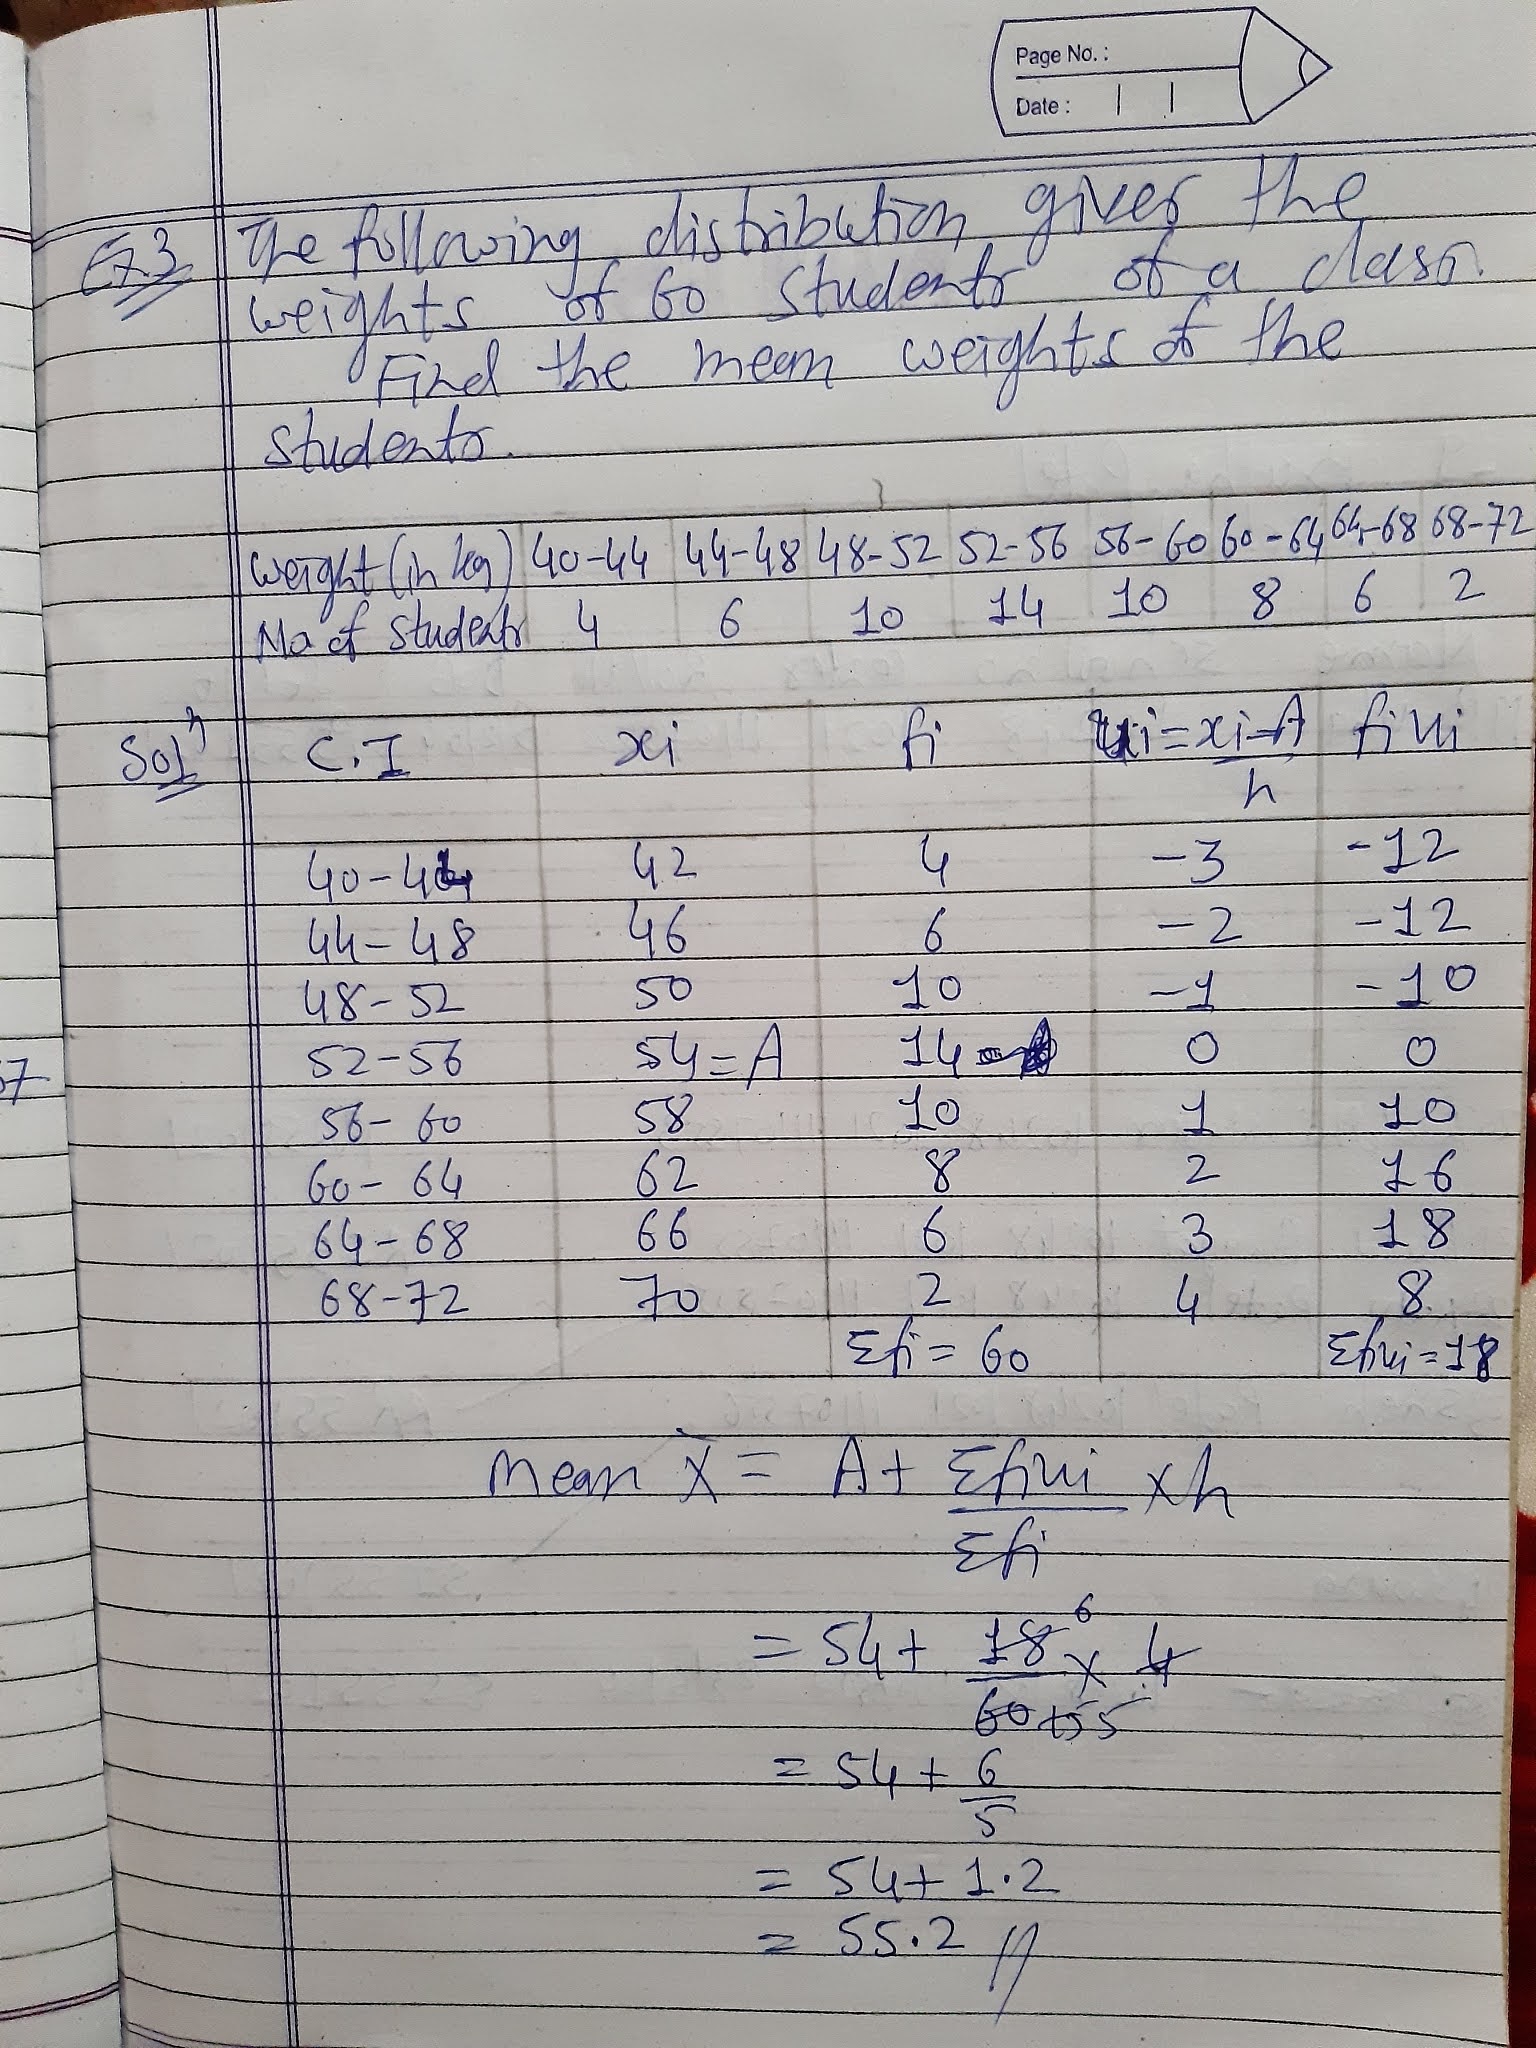 Page No. :
Date :
Ex.3 The following distribution gives the
weights of 60 students of a class.
Find the mean weights of the
students.
weight (in kg) 40-44 44-48 48-52 52-56 56-60 60-64 64-68 68-72
No of students 4 6 10 14 10 8 6 2
Solⁿ C.I xi fi ui = xi-A/h fiui
40-44 42 4 -3 -12
44-48 46 6 -2 -12
48-52 50 10 -1 -10
52-56 54=A 14 0 0
57
56-60 58 10 1 10
60-64 62 8 2 16
64-68 66 6 3 18
68-72 70 2 4 8
Σfi = 60 Σfiui = 18
Mean X̄ = A + Σfiui/Σfi × h
= 54 + 18/60 × 4
6
15 5
= 54 + 6/5
= 54 + 1.2
= 55.2 //